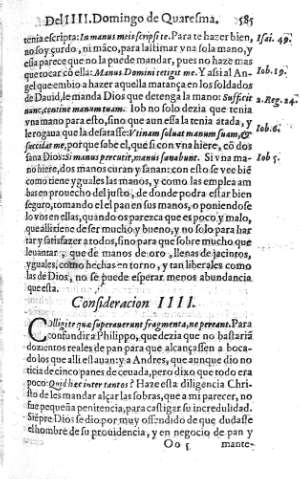 Del IIII. Domingo de Quaresma. 585
tenia escripta: In manus meis scripsi te. Para te hazer bien, Isai. 49.
no soy çurdo, ni māco, para lastimar vna sola mano, y
essa parece que no la puede mandar, pues no haze mas
que tocar cō ella: Manus Domini tetigit me. Y assi al An- Iob. 19.
gel que embio a hazer aquella matança en los soldados
de Dauid, le manda Dios que detenga la mano: Sufficit 2. Reg. 24.
nunc, contine manum tuam. Iob no solo dezia que tenia
vna mano para esto, sino que aun essa la tenia atada, y
le rogaua que la desatasse: Vtinam soluat manum suam, & Iob. 6.
succidat me, porque sabe el, que si con vna hiere, cō dos
sana Dios: Si manus percutit, manus sanabunt. Si vna ma- Iob 5.
no hiere, dos manos curan y sanan: con esto se vee biē
como tiene yguales las manos, y como las emplea am
bas en prouecho del justo, de donde podra estar bien
seguro, tomando el el pan en sus manos, o poniendose
lo vos en ellas, quando os parezca que es poco y malo,
que alli tiene de ser mucho y bueno, y no solo para har
tar y satisfazer a todos, sino para que sobre mucho que
leuantar, que de manos de oro, llenas de jacintos,
yguales, como hechas en torno, y tan liberales como
las de Dios, no se puede esperar menos abundancia
que esta.
Consideracion IIII.
Colligite quæ superauerunt fragmenta, ne pereant. Para
confundir a Philippo, que dezia que no bastaria
dozientos reales de pan para que alcançassen a boca-
do los que alli estauan: y a Andres, que aunque dio no
ticia de cinco panes de ceuada, pero dixo que todo era
poco: Quid hæc inter tantos? Haze esta diligencia Chri-
sto de les mandar alçar las sobras, que a mi parecer, no
fue pequeña penitencia, para castigar su incredulidad.
Siēpre Dios se dio por muy offendido de que dudasse
el hombre de su prouidencia, y en negocio de pan y
Oo 5 mante-